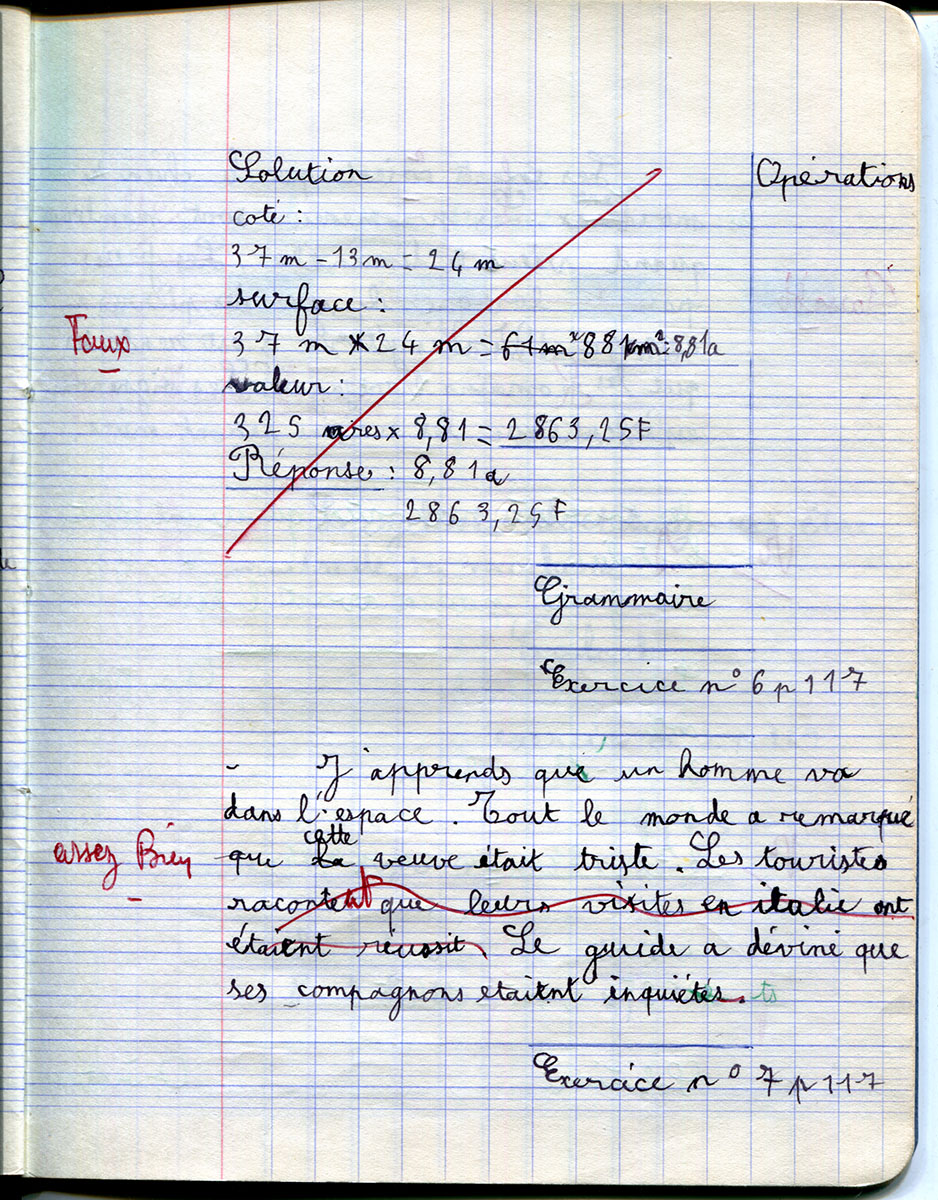 Solution
Opérations
coté :
37 m - 13 m = 24 m
surface :
Faux
37 m × 24 m = 61 m² 881 m² = 8,81a
valeur :
325 ares × 8,81 = 2863,25F
Réponse : 8,81a
2863,25F
Grammaire
Exercice n° 6 p 117
- J'apprends que un homme va
dans l'espace. Tout le monde a remarqué
cette
assez Bien
que la veuve était triste. Les touristes
racontent que leurs visites en italie ont
étaient réussit. Le guide a déviné que
ses compagnons etaient inquiétés. ts
Exercice n° 7 p 117